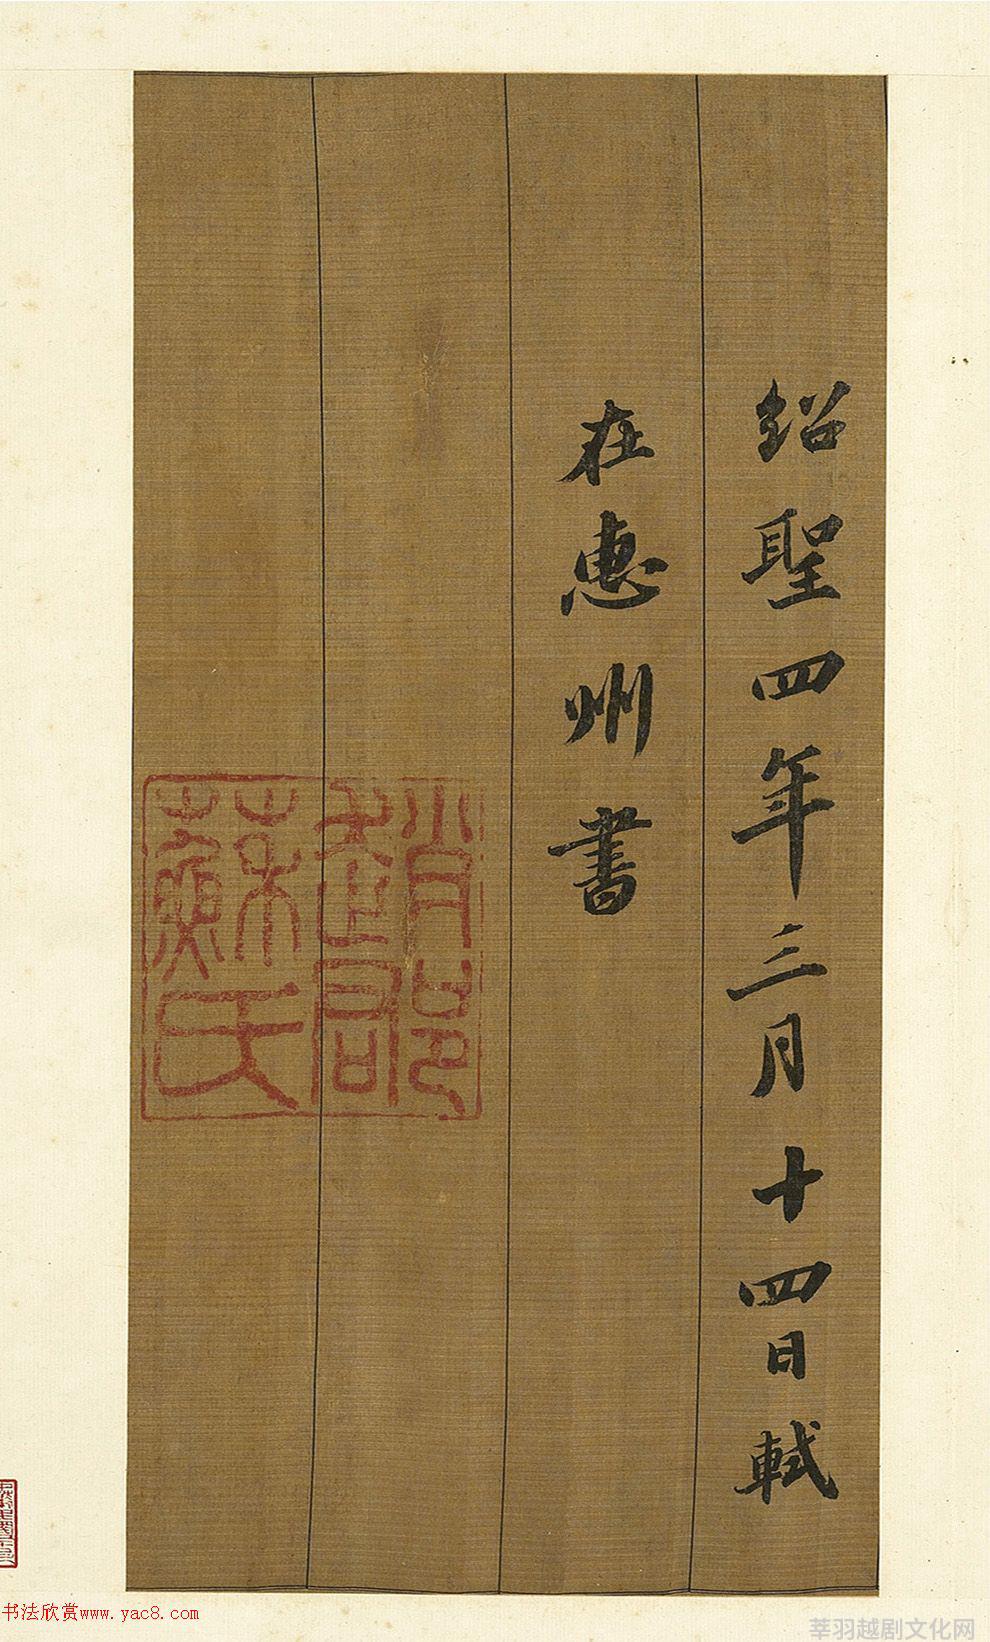 紹聖四年三月十四日軾
在惠州書
趙郡蘇氏
书法欣赏www.yac8.com
莘羽越剧文化网